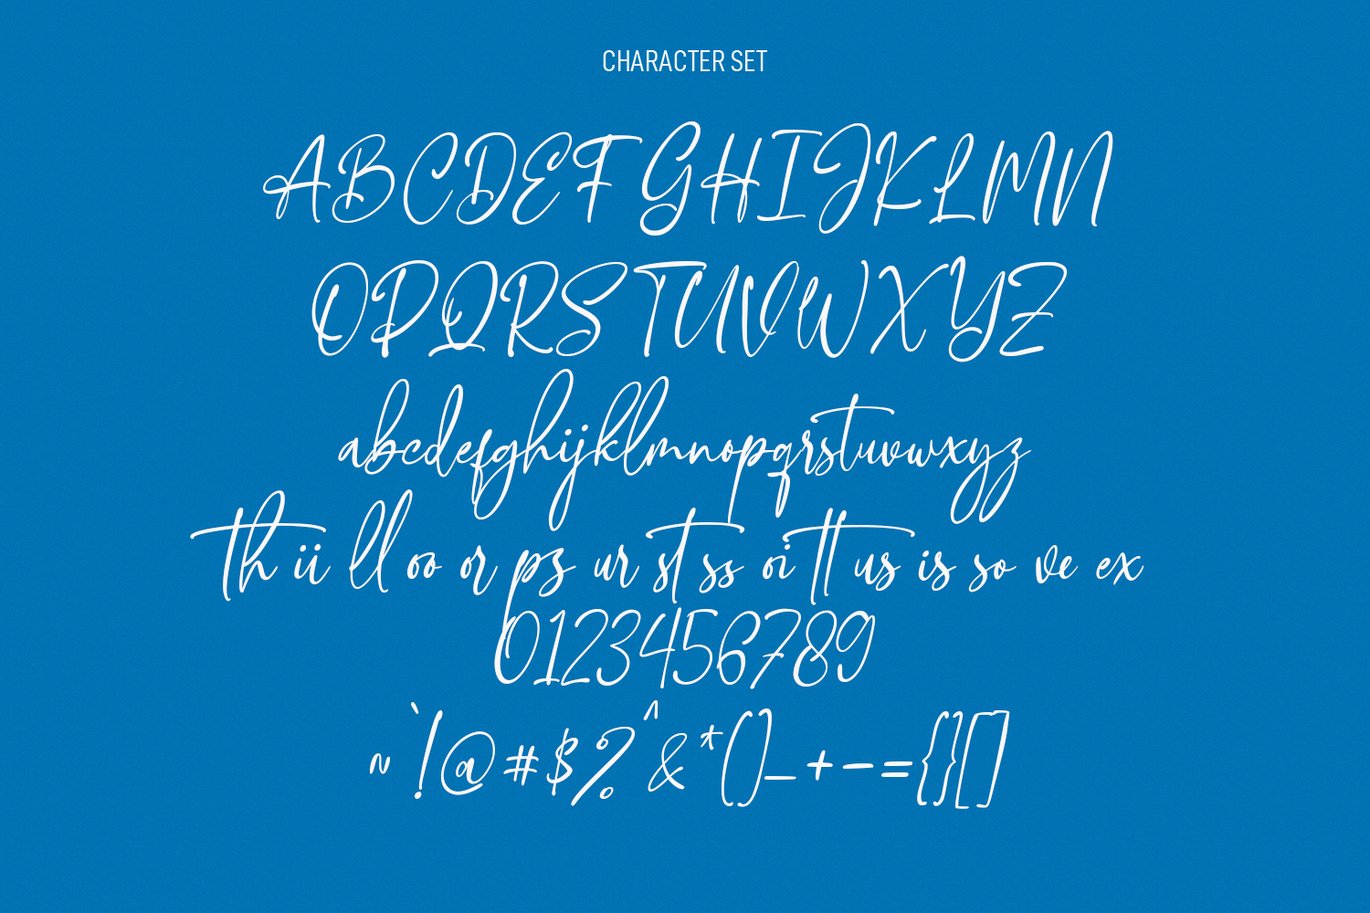 CHARACTER SET
ABCDEFGHIJKLMN
OPQRSTUVWXYZ
abcdefghijklmnopqrstuvwxyz
th ii ll oo or ps ur st ss oi tt us is so ve ex
0123456789
~`!@#$%^&*()_+-={}[]